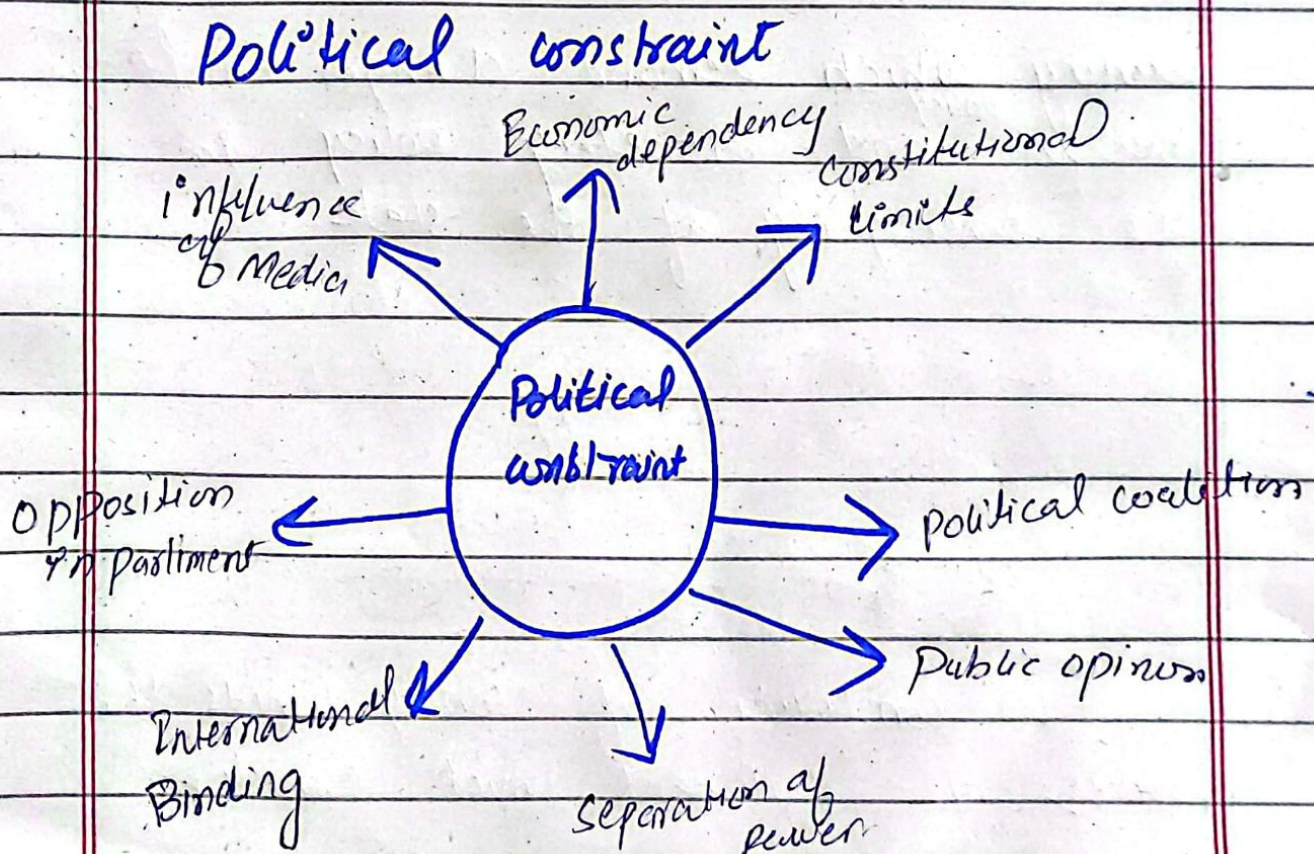 Political constraint
Economic
dependency
constitutional
limits
influence
of Media
Political
constraint
Opposition
in parliment
political coalition
public opinion
International
Binding
separation of
power